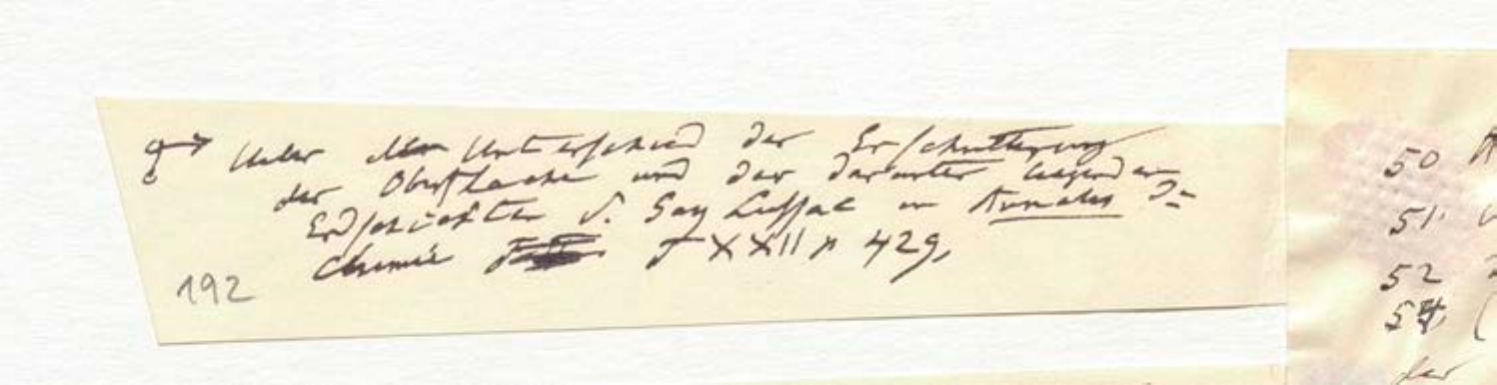 Ueber den Unterschied der Erschütterung
der Oberflaeche und der darunter liegenden
Erdschichten s. Gay Lussac in Annales de
Chimie T XXII p 429,
192
50
51
52
54,
der